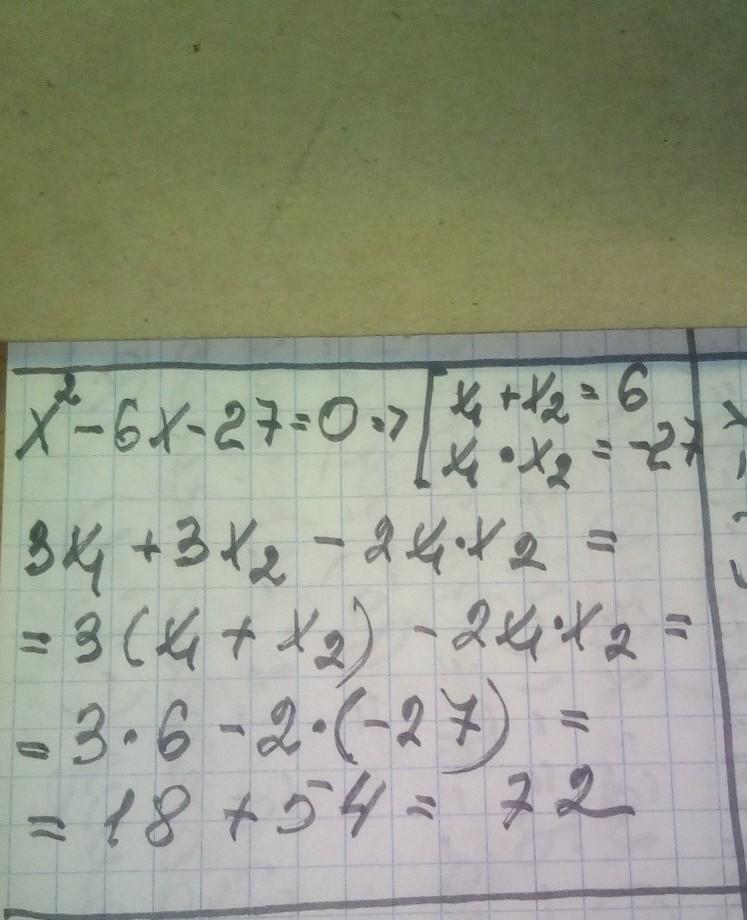 x² - 6x - 27 = 0 => [ x₁ + x₂ = 6
x₁ · x₂ = -27
3x₁ + 3x₂ - 2x₁·x₂ =
= 3(x₁ + x₂) - 2x₁·x₂ =
= 3·6 - 2·(-27) =
= 18 + 54 = 72